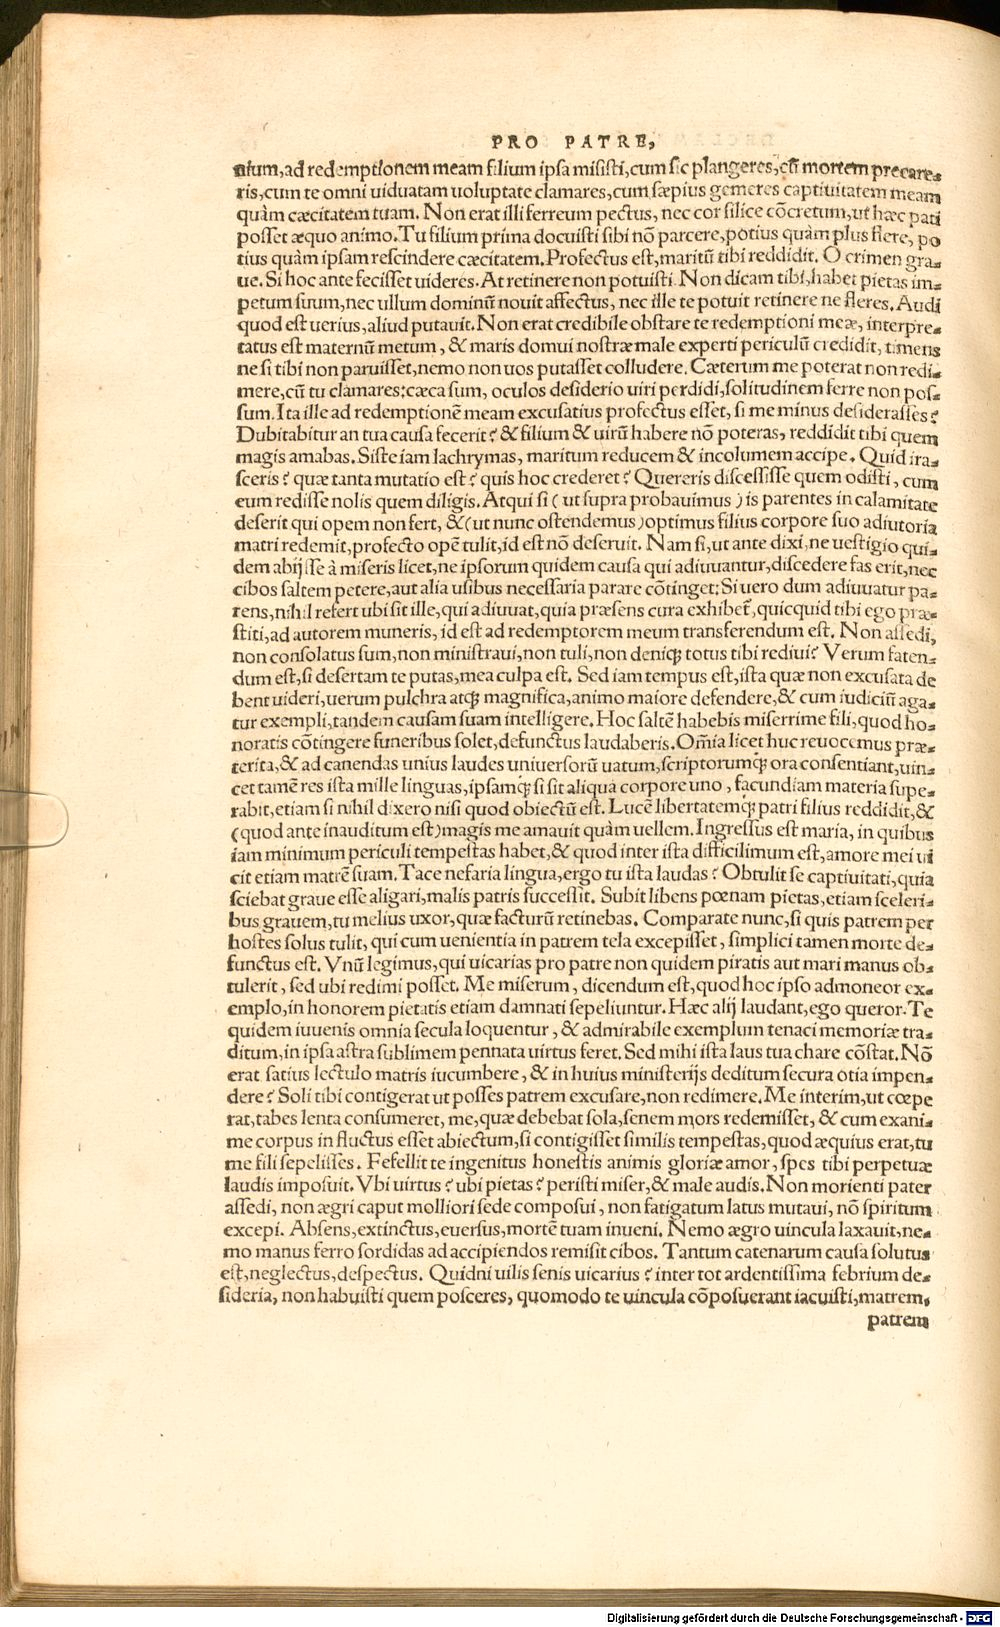 PRO PATRE,
nium, ad redemptionem meam filium ipsa misisti, cum sic plangeres, cũ mortem precare-
ris, cum te omni uiduatam uoluptate clamares, cum sæpius gemeres captiuitatem meam
quàm cæcitatem tuam. Non erat illi ferreum pectus, nec cor silice cõcretum, ut hæc pati
posset æquo animo. Tu filium prima docuisti sibi nõ parcere, potius quàm plus flere, po
tius quàm ipsam rescindere cæcitatem. Profectus est, maritũ tibi reddidit. O crimen gra-
ue. Si hoc ante fecisset uideres. At retinere non potuisti. Non dicam tibi, habet pietas im-
petum suum, nec ullum dominũ nouit affectus, nec ille te potuit retinere ne fleres. Audi
quod est uerius, aliud putauit. Non erat credibile obstare te redemptioni meæ, interpre-
tatus est maternũ metum, & maris domui nostræ male experti periculũ credidit, timens
ne si tibi non paruisset, nemo non uos putasset colludere. Cæterum me poterat non redi-
mere, cũ tu clamares: cæca sum, oculos desiderio uiri perdidi, solitudinem ferre non pos-
sum. Ita ille ad redemptionẽ meam excusatius profectus esset, si me minus desiderasses?
Dubitabitur an tua causa fecerit? & filium & uirũ habere nõ poteras, reddidit tibi quem
magis amabas. Siste iam lachrymas, maritum reducem & incolumem accipe. Quid ira-
sceris? quæ tanta mutatio est? quis hoc crederet? Quereris discessisse quem odisti, cum
eum redisse nolis quem diligis. Atqui si (ut supra probauimus) is parentes in calamitate
deserit qui opem non fert, & (ut nunc ostendemus) optimus filius corpore suo adiutoria
matri redemit, profecto opẽ tulit, id est nõ deseruit. Nam si, ut ante dixi, ne uestigio qui-
dem abijsse à miseris licet, ne ipsorum quidem causa qui adiuuantur, discedere fas erit, nec
cibos saltem petere, aut alia usibus necessaria parare cõtinget: Si uero dum adiuuatur pa-
rens, nihil refert ubi sit ille, qui adiuuat, quia præsens cura exhibet̃, quicquid tibi ego præ-
stiti, ad autorem muneris, id est ad redemptorem meum transferendum est. Non assedi,
non consolatus sum, non ministraui, non tuli, non deniqꝫ totus tibi rediui? Verum faten-
dum est, si desertam te putas, mea culpa est. Sed iam tempus est, ista quæ non excusata de
bent uideri, uerum pulchra atqꝫ magnifica, animo maiore defendere, & cum iudiciũ aga-
tur exempli, tandem causam suam intelligere. Hoc saltẽ habebis miserrime fili, quod ho-
noratis cõtingere funeribus solet, defunctus laudaberis. Om̃ia licet huc reuocemus præ-
terita, & ad canendas unius laudes uniuersorũ uatum, scriptorumqꝫ ora consentiant, uin-
cet tamẽ res ista mille linguas, ipsamqꝫ si sit aliqua corpore uno, facundiam materia supe-
rabit, etiam si nihil dixero nisi quod obiectũ est. Lucẽ libertatemqꝫ patri filius reddidit, &
(quod ante inauditum est) magis me amauit quàm uellem. Ingressus est maria, in quibus
iam minimum periculi tempestas habet, & quod inter ista difficilimum est, amore mei ui
cit etiam matrẽ suam. Tace nefaria lingua, ergo tu ista laudas? Obtulit se captiuitati, quia
sciebat graue esse aligari, malis patris successit. Subit libens pœnam pietas, etiam sceleri-
bus grauem, tu melius uxor, quæ facturũ retinebas. Comparate nunc, si quis patrem per
hostes solus tulit, qui cum uenientia in patrem tela excepisset, simplici tamen morte de-
functus est. Vnũ legimus, qui uicarias pro patre non quidem piratis aut mari manus ob-
tulerit, sed ubi redimi posset. Me miserum, dicendum est, quod hoc ipso admoneor ex-
emplo, in honorem pietatis etiam damnati sepeliuntur. Hæc alij laudant, ego queror. Te
quidem iuuenis omnia secula loquentur, & admirabile exemplum tenaci memoriæ tra-
ditum, in ipsa astra sublimem pennata uirtus feret. Sed mihi ista laus tua chare cõstat. Nõ
erat satius lectulo matris iucumbere, & in huius ministerijs deditum secura otia impen-
dere? Soli tibi contigerat ut posses patrem excusare, non redimere. Me interim, ut cœpe
rat, tabes lenta consumeret, me, quæ debebat sola, senem mors redemisset, & cum exani-
me corpus in fluctus esset abiectum, si contigisset similis tempestas, quod æquius erat, tu
me fili sepelisses. Fefellit te ingenitus honestis animis gloriæ amor, spes tibi perpetuæ
laudis imposuit. Vbi uirtus? ubi pietas? peristi miser, & male audis. Non morienti pater
assedi, non ægri caput molliori sede composui, non fatigatum latus mutaui, nõ spiritum
excepi. Absens, extinctus, euersus, mortẽ tuam inueni. Nemo ægro uincula laxauit, ne-
mo manus ferro sordidas ad accipiendos remisit cibos. Tantum catenarum causa solutus
est, neglectus, despectus. Quidni uilis senis uicarius? inter tot ardentissima febrium de-
sideria, non habuisti quem posceres, quomodo te uincula cõposuerant iacuisti, matrem,
patrem
Digitalisierung gefördert durch die Deutsche Forschungsgemeinschaft - DFG